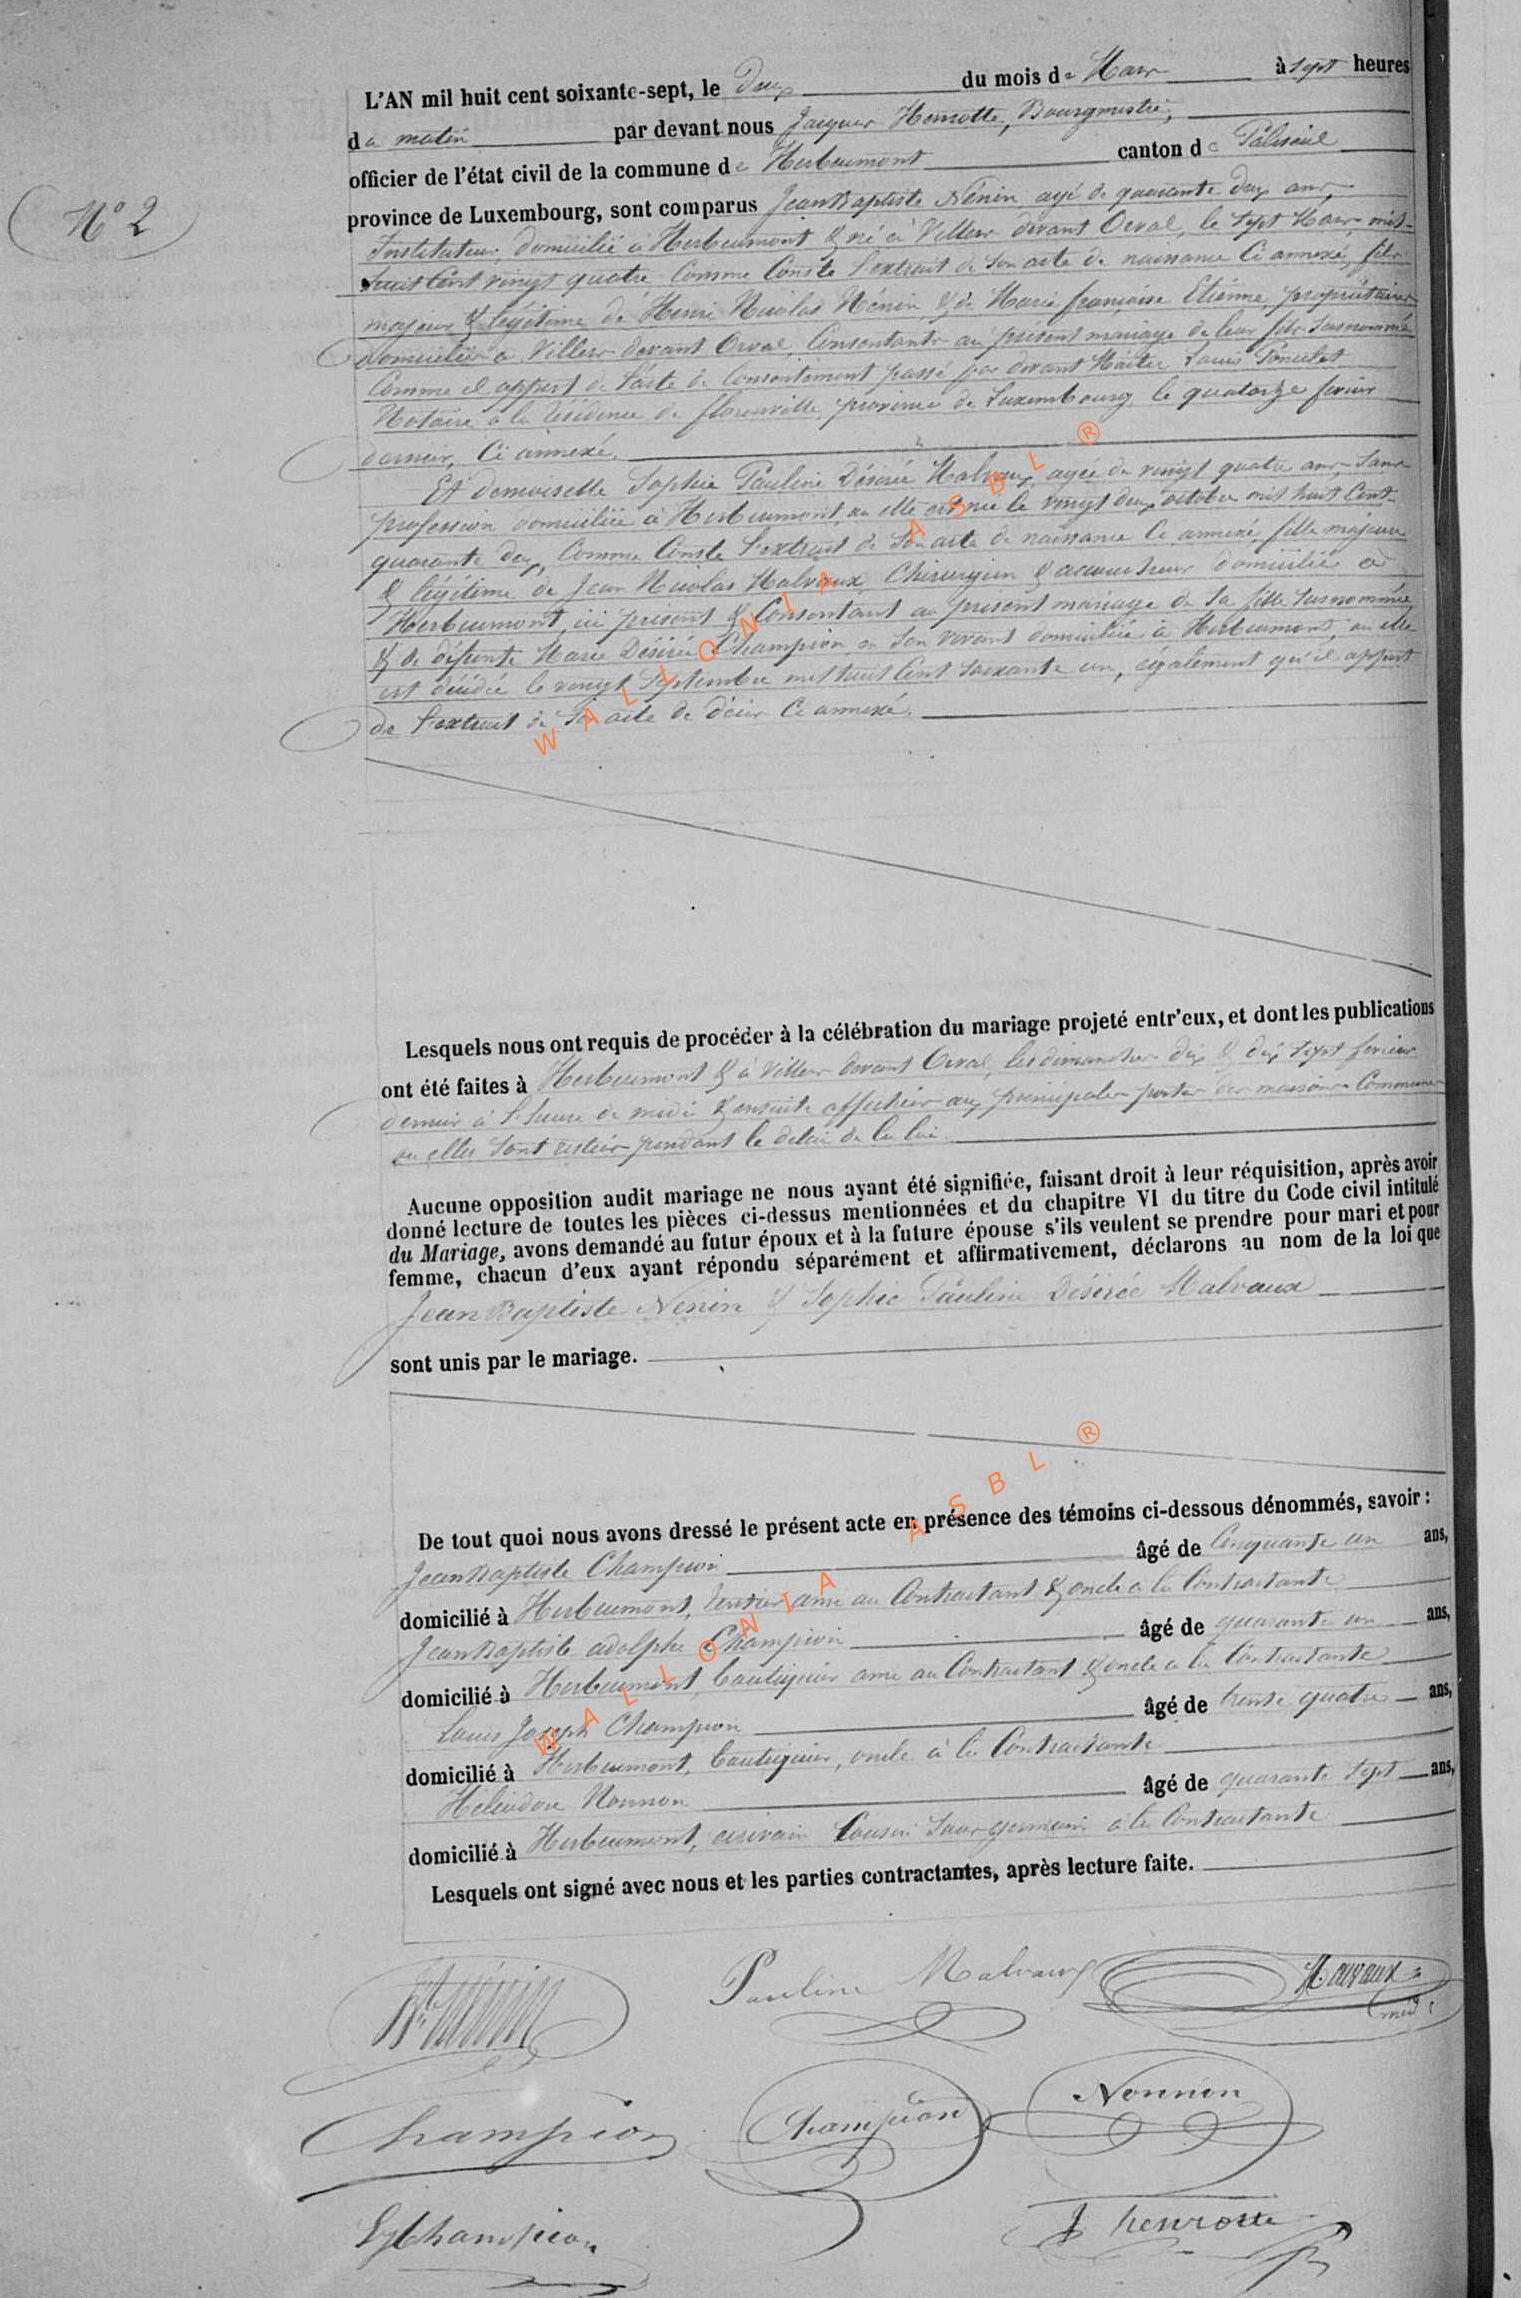 N° 2
L'AN mil huit cent soixante-sept, le Deux du mois de Mars à sept heures
du matin par devant nous Jacques Henrotte, Bourgmestre,
officier de l'état civil de la commune de Herbeumont canton de Paliseul
province de Luxembourg, sont comparus Jean Baptiste Nénin, agé de quarante deux ans,
Instituteur, domicilié à Herbeumont & né à Villers devant Orval, le sept Mars mil-
huit Cent vingt quatre Comme Conste l'extrait de son acte de naissance Ci annexé, fils
majeur & légitime de Henri Nicolas Nénin & de Marie françoise Etienne, propriétaires
domiciliés à Villers devant Orval, Consentants au présent mariage de leur fils susnommé
Comme il appert de l'acte de Consentement passé par devant Maître Louis Poncelet
Notaire à la résidence de florenville, province de Luxembourg, le quatorze fevrier
dernier, Ci annexé.
Et demoiselle Sophie Pauline Désirée Malvaux, agée de vingt quatre ans, sans
profession domiciliée à Herbeumont, où elle est née le vingt deux octobre mil huit Cent-
quarante deux, Comme Conste l'extrait de son acte de naissance Ci annexé, fille majeure
& légitime de Jean Nicolas Malvaux, Chirurgien & accoucheur domicilié à
Herbeumont, ici présent & Consentant au présent mariage de sa fille susnommée
& de défunte Marie Désirée Champion en son vivant domiciliée à Herbeumont, où elle
est décédée le vingt Septembre mil huit Cent soixante un, également qu'il appert
de l'extrait de son acte de décès Ci annexé.
WALLONIA ASBL ®
Lesquels nous ont requis de procéder à la célébration du mariage projeté entr'eux, et dont les publications
ont été faites à Herbeumont & à Villers devant Orval, les dimanches dix & dix sept fevrier
dernier à l'heure de midi & ensuite affichées aux principales portes des maisons Communes
où elles sont restées pendant le délai de la loi
Aucune opposition audit mariage ne nous ayant été signifiée, faisant droit à leur réquisition, après avoir
donné lecture de toutes les pièces ci-dessus mentionnées et du chapitre VI du titre du Code civil intitulé
du Mariage, avons demandé au futur époux et à la future épouse s'ils veulent se prendre pour mari et pour
femme, chacun d'eux ayant répondu séparément et affirmativement, déclarons au nom de la loi que
Jean Baptiste Nenin & Sophie Pauline Désirée Malvaux
sont unis par le mariage.
De tout quoi nous avons dressé le présent acte en présence des témoins ci-dessous dénommés, savoir :
Jean Baptiste Champion âgé de Cinquante un ans,
domicilié à Herbeumont, rentier ami au Contractant & oncle a la Contractante
Jean Baptiste adolphe Champion âgé de quarante un ans,
domicilié à Herbeumont, boutiquier ami au Contractant & oncle a la Contractante
Louis Joseph Champion âgé de trente quatre ans,
domicilié à Herbeumont, boutiquier, oncle à la Contractante
Héliodore Nonnon âgé de quarante sept ans,
domicilié à Herbeumont, écrivain Cousin sous germain à la Contractante
Lesquels ont signé avec nous et les parties contractantes, après lecture faite.
WALLONIA ASBL ®
Nénin Pauline Malvaux Malvaux
Champion Champion Nonnon
Champion J henrotte